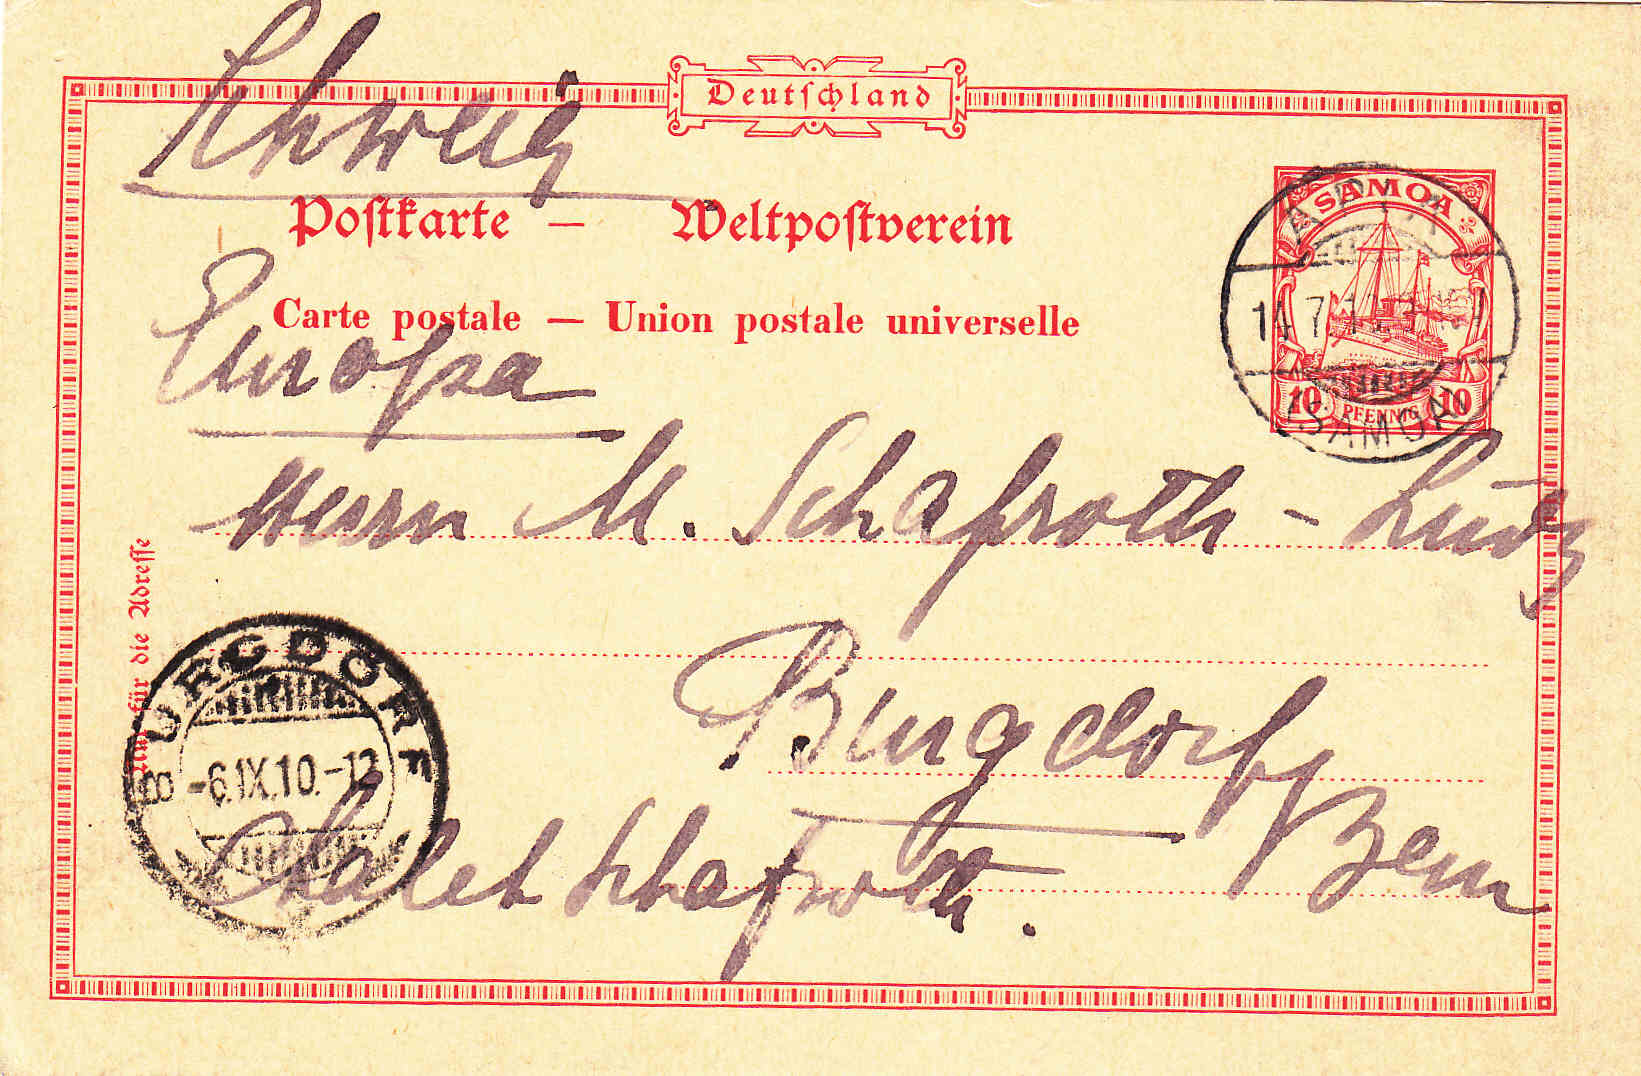 Deutschland
Schweiz
SAMOA
APIA
Postkarte — Weltpostverein
Carte postale — Union postale universelle
14.7.10
Europa
10 PFENNIG 10
SAMOA
Herrn M. Schafroth - Lutz
Nur für die Adresse
BURGDORF
Burgdorf
-6.IX.10.-12
Bern
Chalet Schafroth.